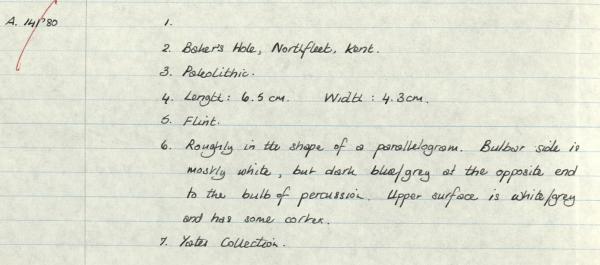 A. 141'80
1.
2. Baker's Hole, Northfleet, Kent.
3. Paleolithic.
4. Length: 6.5 cm. Width: 4.3 cm.
5. Flint.
6. Roughly in the shape of a parallelogram. Bulbar side is
mostly white, but dark blue/grey at the opposite end
to the bulb of percussion. Upper surface is white/grey
and has some cortex.
7. Yates Collection.